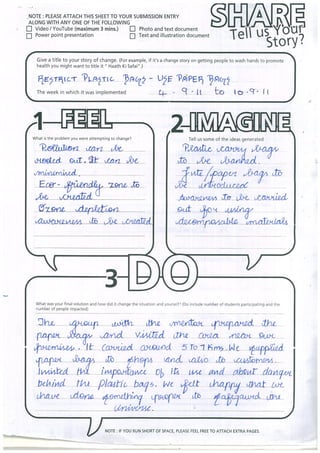 NOTE : PLEASE ATTACH THIS SHEET TO YOUR SUBMISSION ENTRY
ALONG WITH ANY ONE OF THE FOLLOWING
Video / YouTube (maximum 3 mins.)
Photo and text document
Power point presentation
Text and illustration document
SHARE
Tell us Your
Story?
Give a title to your story of change. (For example, if it's a change story on getting people to wash hands to promote
health you might want to title it " Haath Ki Safai".)
RESTRICT PLASTIC BAGS - USE PAPER BAGS
The week in which it was implemented 4 . 9 . 11 to 10 . 9 . 11
1 FEEL
What is the problem you were attempting to change?
Pollution can be
rooled out. It can be
minimised.
Eco - friendly zone to
be created
Ozone depletion
awareness to be created
2 IMAGINE
Tell us some of the ideas generated
Plastic carry bags
to be banned.
Jute/paper bags to
be introduced
Awareness to be carried
out for using
decomposable materials
3 DO
What was your final solution and how did it change the situation and yourself? (Do include number of students participating and the
number of people impacted)
The group with the mentor prepared the
paper bags and visited the area near our
premises. It carried around 5 to 7 Kms. We supplied
paper bags to shops and also to customers.
the importance of its use and about danger
behind the plastic bags. We felt happy that we
have done something proper to safeguard the
Universe.
NOTE : IF YOU RUN SHORT OF SPACE, PLEASE FEEL FREE TO ATTACH EXTRA PAGES.